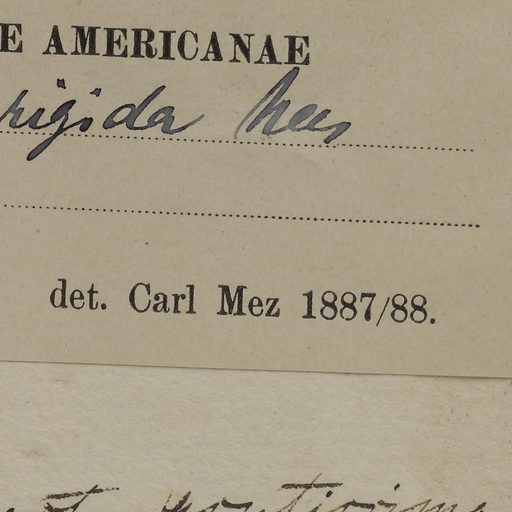 E AMERICANAE
rigida Nees
det. Carl Mez 1887/88.